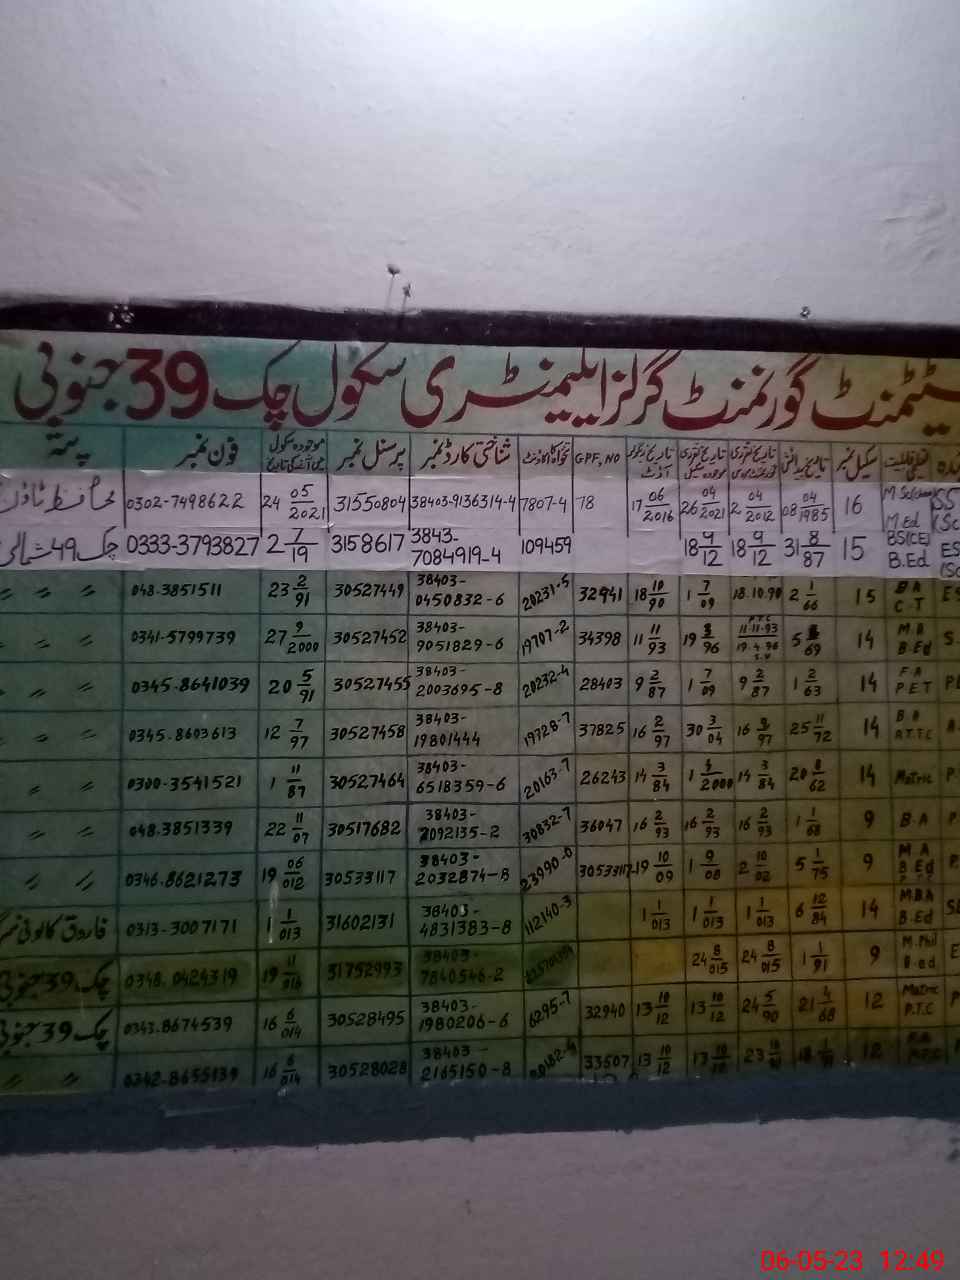 سٹیٹمنٹ گورنمنٹ گرلز ایلیمنٹری سکول چک 39 جنوبی
سکیل نمبر تاریخ پیدائش GPF, NO شناختی کارڈ نمبر پرسنل نمبر موجودہ سکول میں آمد کی تاریخ فون نمبر پتہ
محافظ ٹاؤن 0302-7498622 24 05/2021 31550804 38403-9136314-4 7807-4 78 17 06/2016 26 04/2021 2 04/2012 08 04/1985 16 M.Ed SS
چک 49 شمالی 0333-3793827 2 7/19 3158617 3843-7084919-4 109459 18 9/12 18 9/12 31 8/87 15 BS(CE) B.Ed
〃 〃 〃 048.3851511 23 2/91 30527449 38403-0450832-6 20231-5 32941 18 10/90 1 7/09 18.10.90 2 1/66 15 B A C-T
〃 〃 〃 0341-5799739 27 9/2000 30527452 38403-9051829-6 19707-2 34398 11 11/93 19 /96 11-11-93 19.4.96 5 /69 14 M.A B.Ed
〃 〃 〃 0345.8641039 20 5/91 30527455 38403-2003695-8 20232-4 28403 9 2/87 1 7/09 9 2/87 1 2/63 14 F.A P.E.T
〃 〃 〃 0345.8603613 12 7/97 30527458 38403-19801444 19728-7 37825 16 2/97 30 3/04 16 /97 25 11/72 14 B.A A.T.T.C
〃 〃 0300-3541521 1 11/87 30527464 38403-6518359-6 20163-7 26243 14 3/84 1 /2000 14 3/84 20 8/62 14 Matric
〃 〃 048.3851339 22 11/07 30517682 38403-2092135-2 30832-7 36047 16 2/93 16 2/93 16 2/93 1 1/68 9 B.A
〃 〃 0346.8621273 19 06/012 30533117 38403-2032874-8 23990-0 30533117 19 10/09 1 9/08 2 10/02 5 1/75 9 M.A B.Ed
فاروق کالونی 0313-3007171 1 1/013 31602131 38403-4831383-8 112140-3 1 1/013 1 1/013 1 1/013 6 12/84 14 M.B.A B.Ed
چک 39 جنوبی 0348.0424319 19 11/016 31752993 38403-7840546-2 24 8/015 24 8/015 1 1/91 9 M.Phil B.ed
چک 39 جنوبی 0343.8674539 16 6/014 30528495 38403-1980206-6 6295-7 32940 13 10/12 13 10/12 24 5/90 21 4/68 12 Matric P.T.C
〃 〃 0342-8655139 16 6/014 30528028 38403-2165150-8 33507 13 10/12 12
06-05-23 12:49